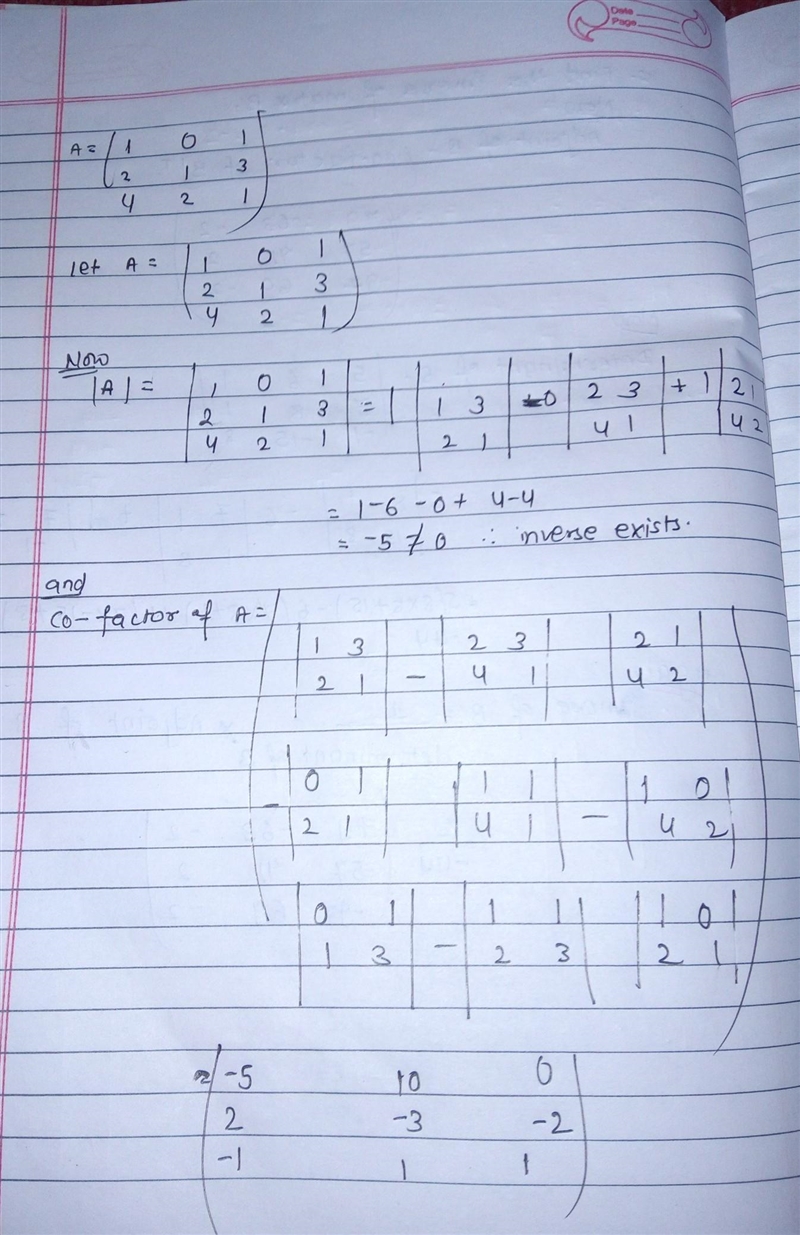 Date
Page
A = ( 1 0 1
2 1 3
4 2 1 )
let A = ( 1 0 1
2 1 3
4 2 1 )
Now
|A| = | 1 0 1 | = 1 | 1 3 | - 0 | 2 3 | + 1 | 2 1 |
| 2 1 3 | | 2 1 | | 4 1 | | 4 2 |
| 4 2 1 |
= 1-6 -0+ 4-4
= -5 ≠ 0 ∴ inverse exists.
and
co-factor of A =
( | 1 3 | - | 2 3 | | 2 1 |
| 2 1 | | 4 1 | | 4 2 |
- | 0 1 | | 1 1 | - | 1 0 |
| 2 1 | | 4 1 | | 4 2 |
| 0 1 | - | 1 1 | | 1 0 |
| 1 3 | | 2 3 | | 2 1 | )
= ( -5 10 0
2 -3 -2
-1 1 1 )